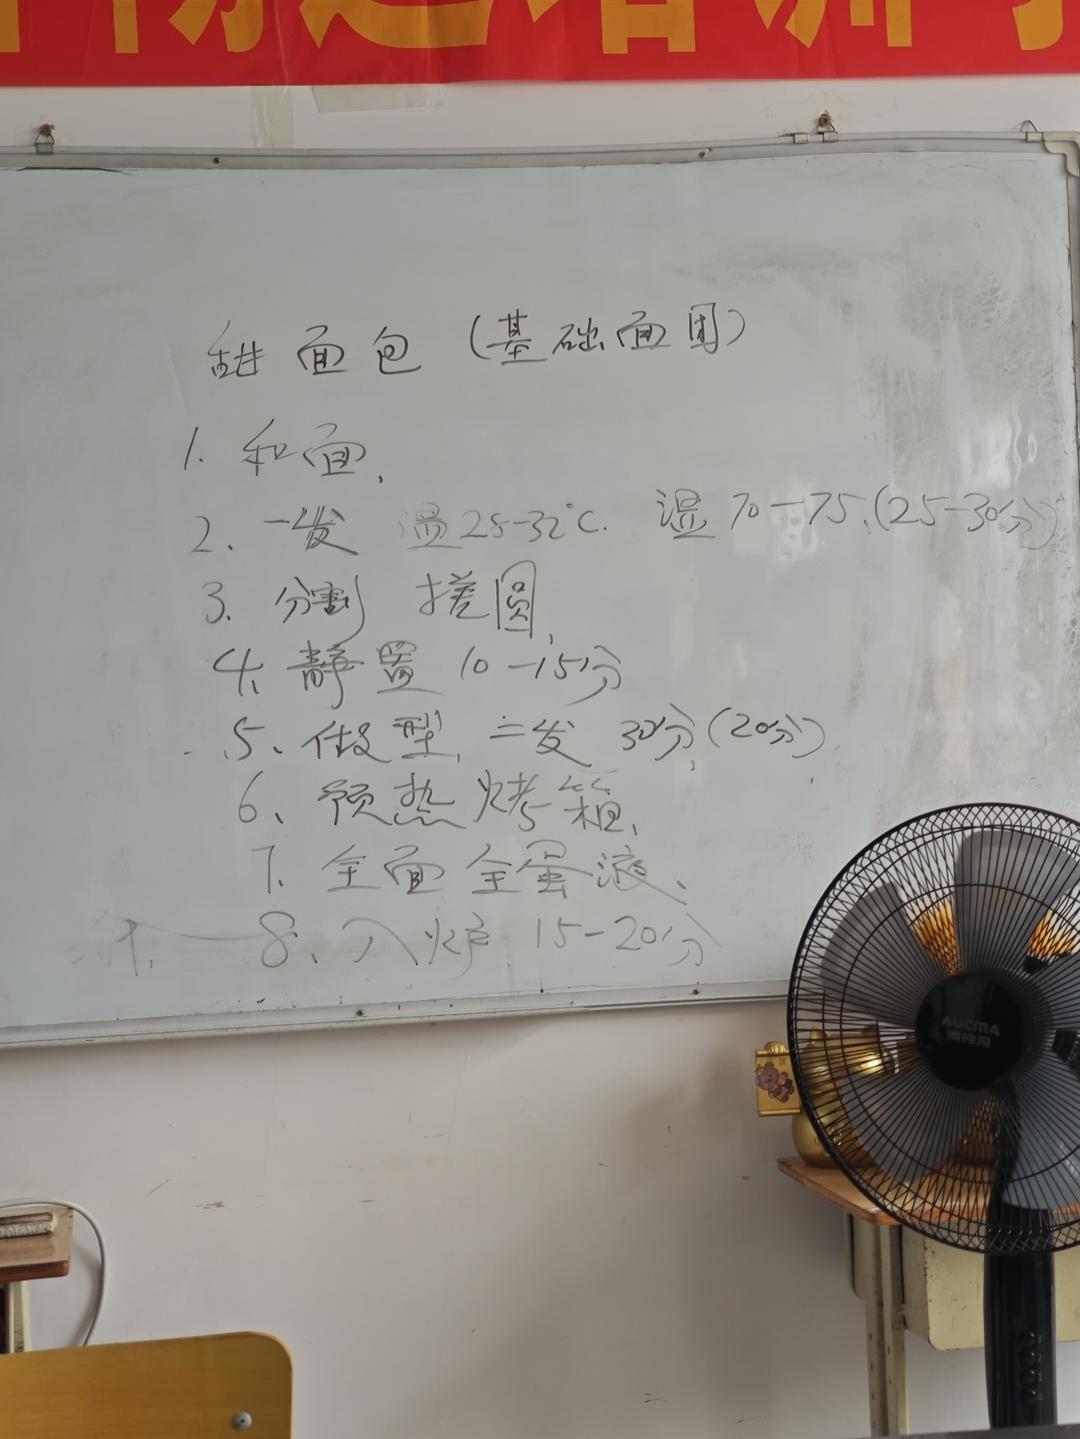 培训
甜面包（基础面团）
1. 和面，
2、一发 温28-32℃. 湿70-75、(25-30分)
3、分割 搓圆，
4、静置 10-15分
5、做型，二发 30分(20分)
6、预热烤箱、
7、全面全蛋液、
8、入炉 15-20分
AUCMA
澳柯玛